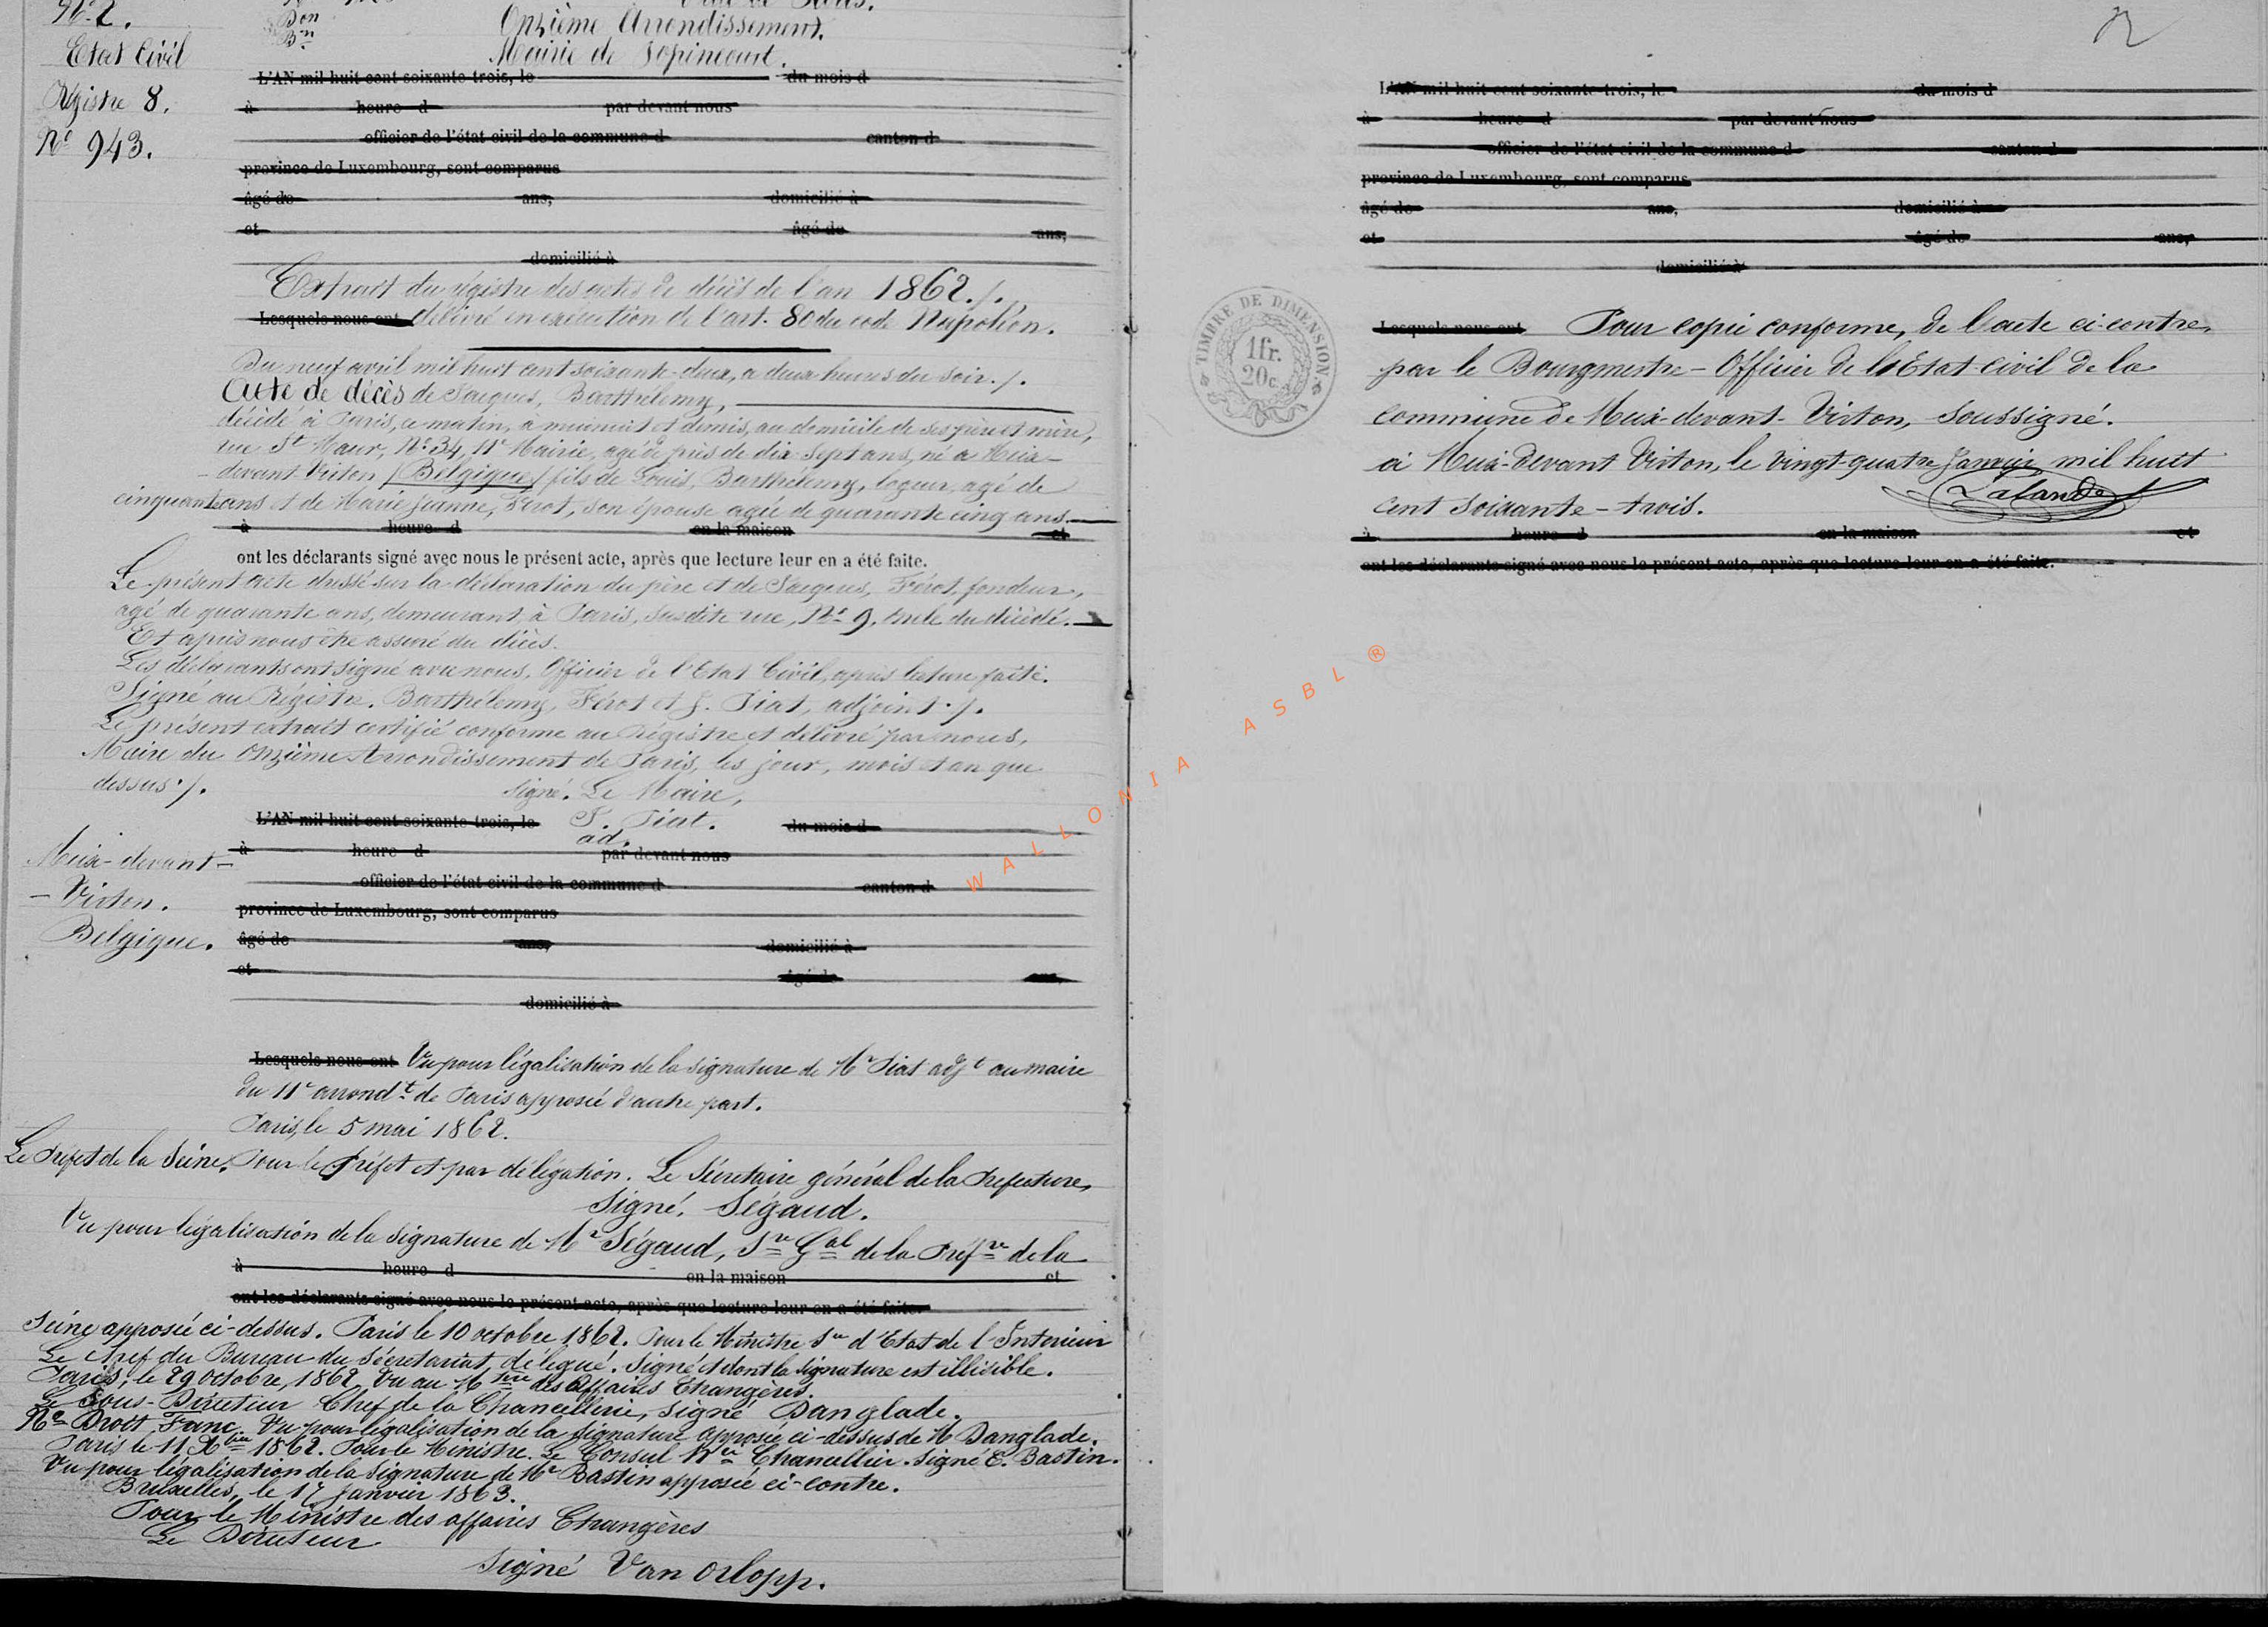 No 2.
Bon
Bon
Onzième Arrondissement.
Etat Civil
Mairie de Popincourt.
L'AN mil huit cent soixante-trois, le du mois d
Régistre 8.
à heure d par devant nous
officier de l'état civil de la commune d canton d
No 943.
province de Luxembourg, sont comparus
âgé de ans, domicilié à
et âgé de ans,
domicilié à
Extrait du régistre des actes de décès de l'an 1862./.
Lesquels nous ont délivré en exécution de l'art. 80 du code Napoléon.
Du neuf avril mil huit cent soixante-deux, a deux heures du soir./.
Acte de décès de Jacques, Barthélemy,
décédé à Paris, ce matin, a minuit et demis, au domicile de ses père et mère,
rue St Maur, No 34, 11e Mairie, agé de près de dix-sept ans, né a Meix-
-devant Virton /Belgique/ fils de Louis, Barthélemy, logeur, agé de
cinquante ans et de Marie Jeanne, Férot, son épouse agée de quarante cinq ans.
à heure d en la maison et
ont les déclarants signé avec nous le présent acte, après que lecture leur en a été faite.
Le présent acte dressé sur la déclaration du père et de Jacques, Férot, fondeur,
agé de quarante ans, demeurant à Paris, susdite rue, No 9. oncle du décédé.
Et après nous être assuré du décès.
Les déclarants ont signé avec nous, Officier de l'Etat Civil, après lecture faite.
Signé au Régistre. Barthélemy, Férot et J. Piat, adjoint./.
Le présent extrait certifié conforme au Régistre et délivré par nous,
Maire du Onzième Arrondissement de Paris, les jour, mois et an que
dessus./. signé. Le Maire,
L'AN mil huit cent soixante-trois, le J. Piat. du mois d
ad.
à heure d par devant nous
Meix-devant-
officier de l'état civil de la commune d canton d
-Virton.
province de Luxembourg, sont comparus
Belgique.
âgé de ans, domicilié à
et âgé de ans,
domicilié à
Lesquels nous ont Vu pour légalisation de la signature de Mr Piat adjt au maire
du 11e arrondt de Paris apposée d'autre part.
Paris, le 5 mai 1862.
Le Préfet de la Seine. Pour le Préfet et par délégation. Le Sécretaire général de la Prefecture,
Signé, Ségaud.
Vu pour légalisation de la signature de Mr Ségaud, Sre Gal de la Préfre de la
à heure d en la maison et
ont les déclarants signé avec nous le présent acte, après que lecture leur en a été faite.
Seine apposée ci-dessus. Paris le 10 octobre 1862. Pour le Ministre Sre d'Etat de l'Interieur
Le chef du Bureau du Sécretariat, délégué. Signé et dont la signature est illisible.
Paris, le 29 octobre, 1862 Vu au Mtère des Affaires Etrangères.
Le Sous-Directeur Chef de la Chancellerie, signé Danglade.
Droit Vu pour légalisation de la signature apposée ci-dessus de M Danglade.
Paris le 11 Xbre 1862. Pour le Ministre. Le Consul Chancellier. Signé E. Bastin.
Vu pour légalisation de la signature de Mr Bastin apposée ci-contre.
Bruxelles, le 17 janvier 1863.
Pour le Ministre des affaires Etrangères
Le Directeur
signé Van Orlopp.
2
L'AN mil huit cent soixante-trois, le du mois d
à heure d par devant nous
officier de l'état civil de la commune d canton d
province de Luxembourg, sont comparus
âgé de ans, domicilié à
et âgé de ans,
domicilié à
TIMBRE DE DIMENSION
1fr.
20c.
Lesquels nous ont Pour copie conforme, de l'acte ci-contre,
par le Bourgmestre - Officier de l'Etat-civil de la
commune de Meix-devant-Virton, soussigné.
à Meix-devant Virton, le vingt-quatre Janvier mil huit
cent soixante-trois. Lafande
à heure d en la maison et
ont les déclarants signé avec nous le présent acte, après que lecture leur en a été faite.
WALLONIA ASBL ®